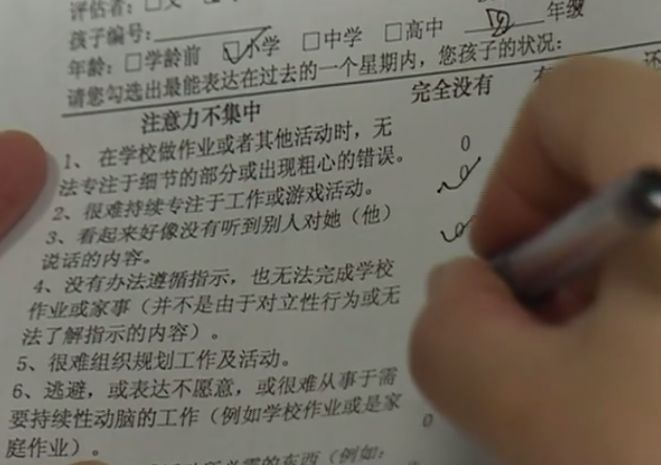 评估者：□父
孩子编号：
年龄：□学龄前 □小学 □中学 □高中 年级
请您勾选出最能表达在过去的一个星期内，您孩子的状况：
注意力不集中 完全没有
1、在学校做作业或者其他活动时，无
法专注于细节的部分或出现粗心的错误。 0
2、很难持续专注于工作或游戏活动。 0
3、看起来好像没有听到别人对她（他） 0
说话的内容。
4、没有办法遵循指示，也无法完成学校
作业或家事（并不是由于对立性行为或无
法了解指示的内容）。
5、很难组织规划工作及活动。
6、逃避，或表达不愿意，或很难从事于需
要持续性动脑的工作（例如学校作业或是家
庭作业）。 0
的东西（例如：